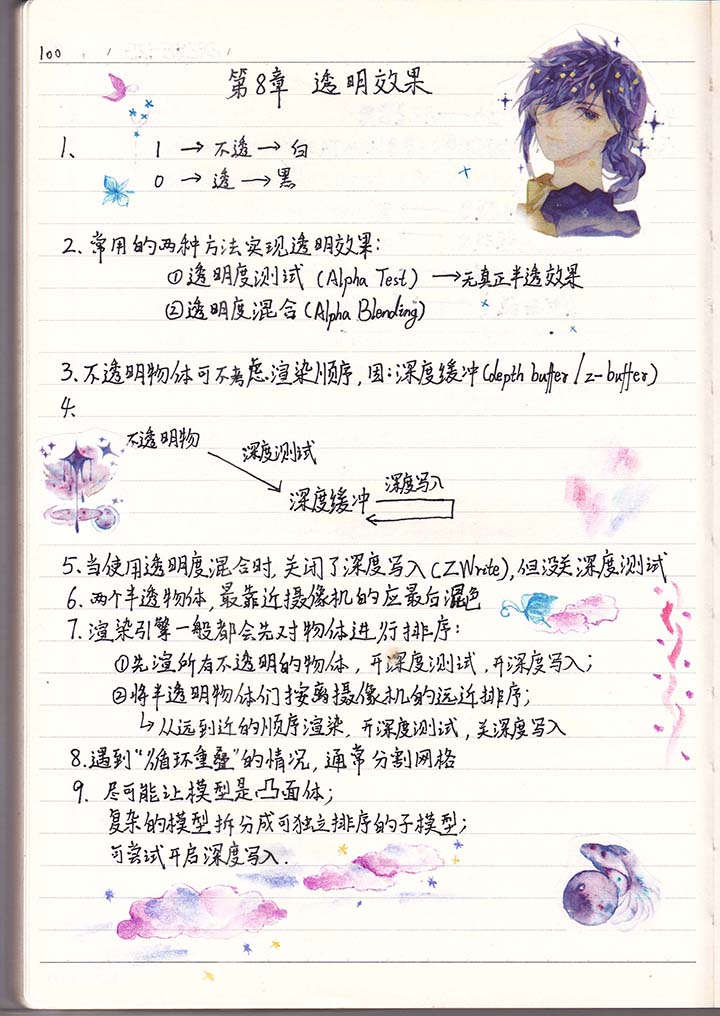 100
第8章 透明效果
1、 1 → 不透 → 白
0 → 透 → 黑
2、常用的两种方法实现透明效果：
①透明度测试（Alpha Test） → 无真正半透效果
②透明度混合（Alpha Blending）
3、不透明物体可不考虑渲染顺序，因：深度缓冲（depth buffer / z-buffer）
4、
不透明物
深度测试
深度缓冲 深度写入
5、当使用透明度混合时，关闭了深度写入（ZWrite），但没关深度测试
6、两个半透物体，最靠近摄像机的应最后混色
7、渲染引擎一般都会先对物体进行排序：
①先渲所有不透明的物体，开深度测试，开深度写入；
②将半透明物体们按离摄像机的远近排序；
↳ 从远到近的顺序渲染，开深度测试，关深度写入
8、遇到“循环重叠”的情况，通常分割网格
9、尽可能让模型是凸面体；
复杂的模型拆分成可独立排序的子模型；
可尝试开启深度写入.